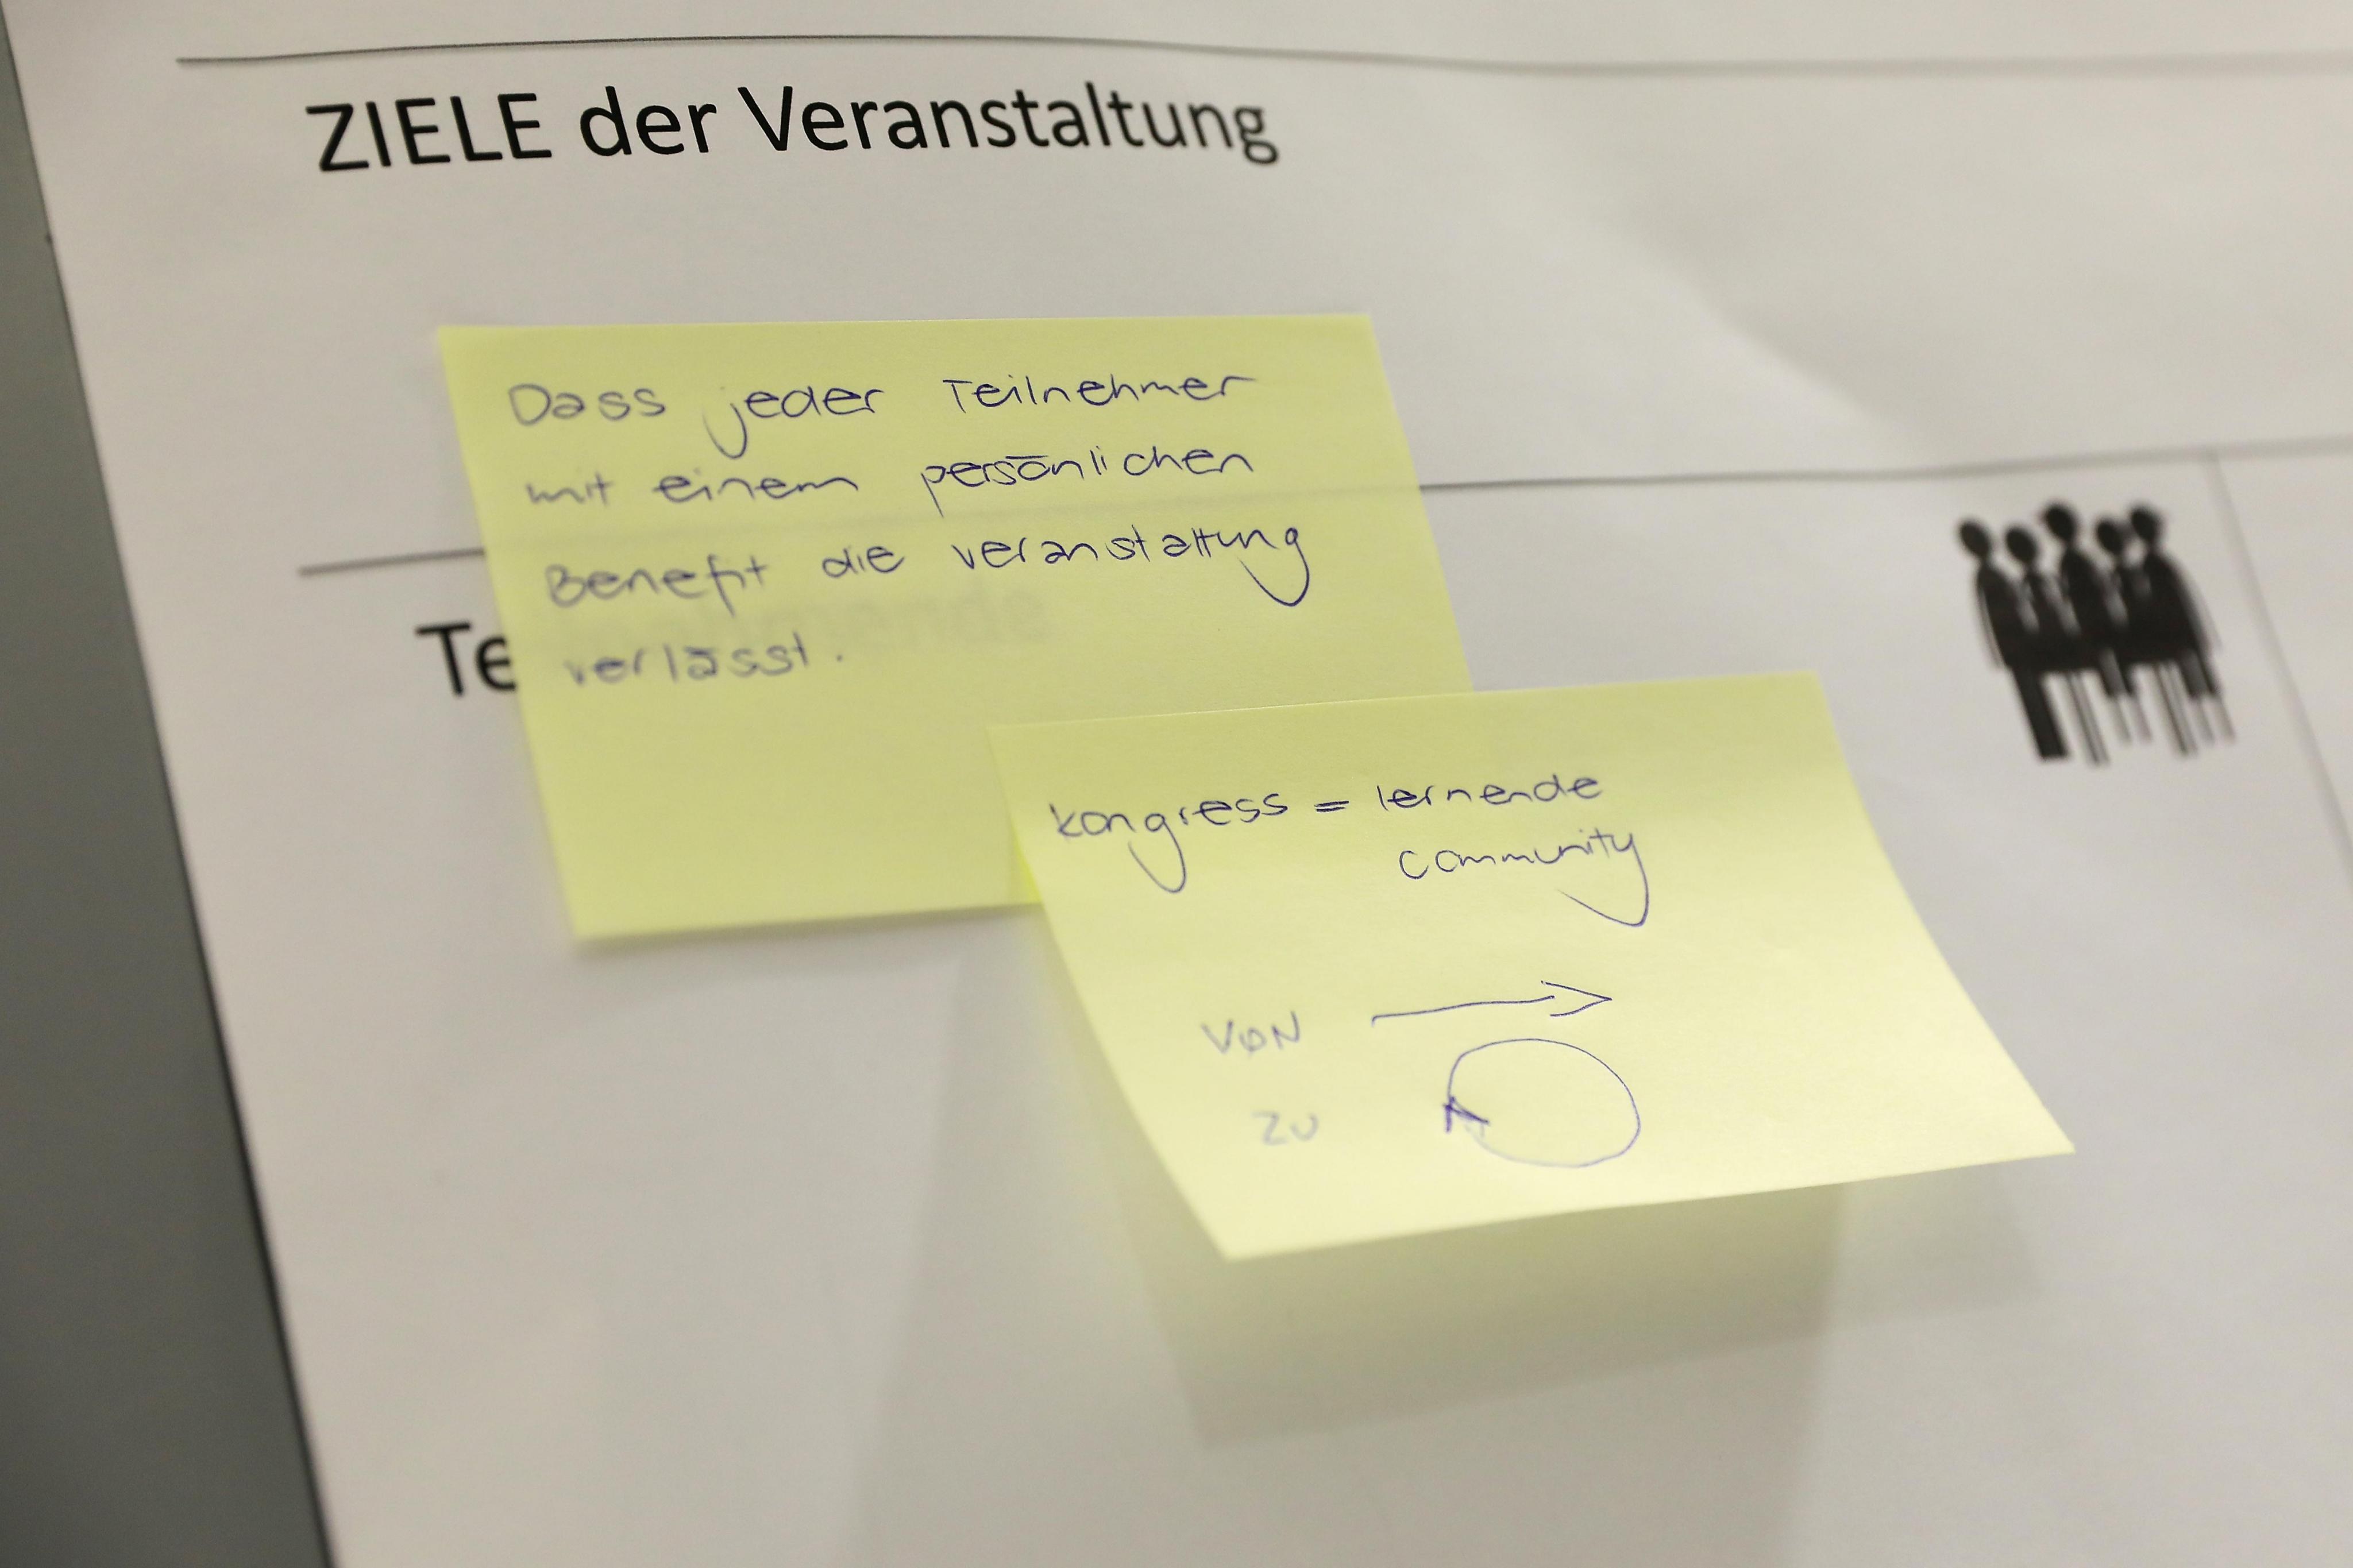 ZIELE der Veranstaltung
Dass jeder Teilnehmer
mit einem persönlichen
Benefit die veranstaltung
verlässt.
Te
kongress = lernende
community
VON
ZU